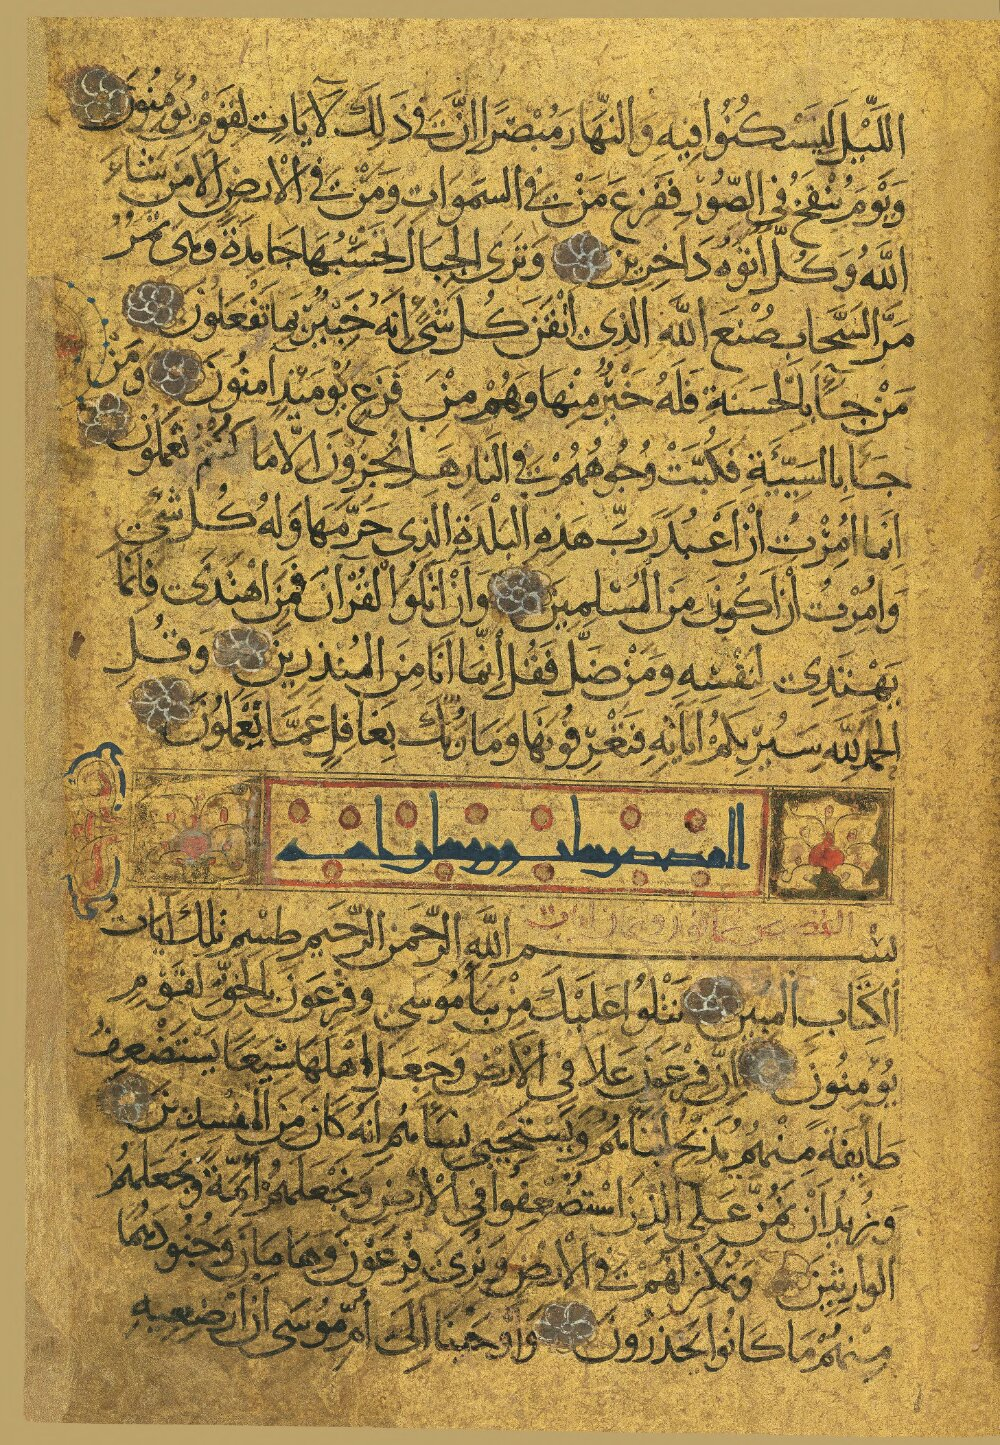 الليل ليسكنوا فيه والنهار مبصرا ان في ذلك لآيات لقوم يؤمنون
ويوم ينفخ في الصور ففزع من في السموات ومن في الارض الا من شاء
الله وكل أتوه داخرين وترى الجبال تحسبها جامدة وهي تمر
مر السحاب صنع الله الذي أتقن كل شئ إنه خبير بما تفعلون
من جاء بالحسنة فله خير منها وهم من فزع يومئذ امنون ومن
جاء بالسيئة فكبت وجوههم في النار هل تجزون الا ما كنتم تعملون
انما امرت ان اعبد رب هذه البلدة الذي حرمها وله كل شئ
وامرت أن اكون من المسلمين وان اتلوا القران فمن اهتدى فانما
يهتدي لنفسه ومن ضل فقل إنما انا من المنذرين وقل
الحمد لله سيريكم اياته فتعرفونها وما ربك بغافل عما تعملون
القصص
بسم الله الرحمن الرحيم طسم تلك ايات
الكتاب المبين نتلوا عليك من نبأ موسى وفرعون بالحق لقوم
يؤمنون إن فرعون علا في الارض وجعل اهلها شيعا يستضعف
طايفة منهم يذبح ابناءهم ويستحيي نساءهم انه كان من المفسدين
ونريد أن نمن على الذين استضعفوا في الارض ونجعلهم أئمة ونجعلهم
الوارثين ونمكن لهم في الارض ونري فرعون وهامان وجنودهما
منهم ما كانوا يحذرون وأوحينا إلى أم موسى أن ارضعيه